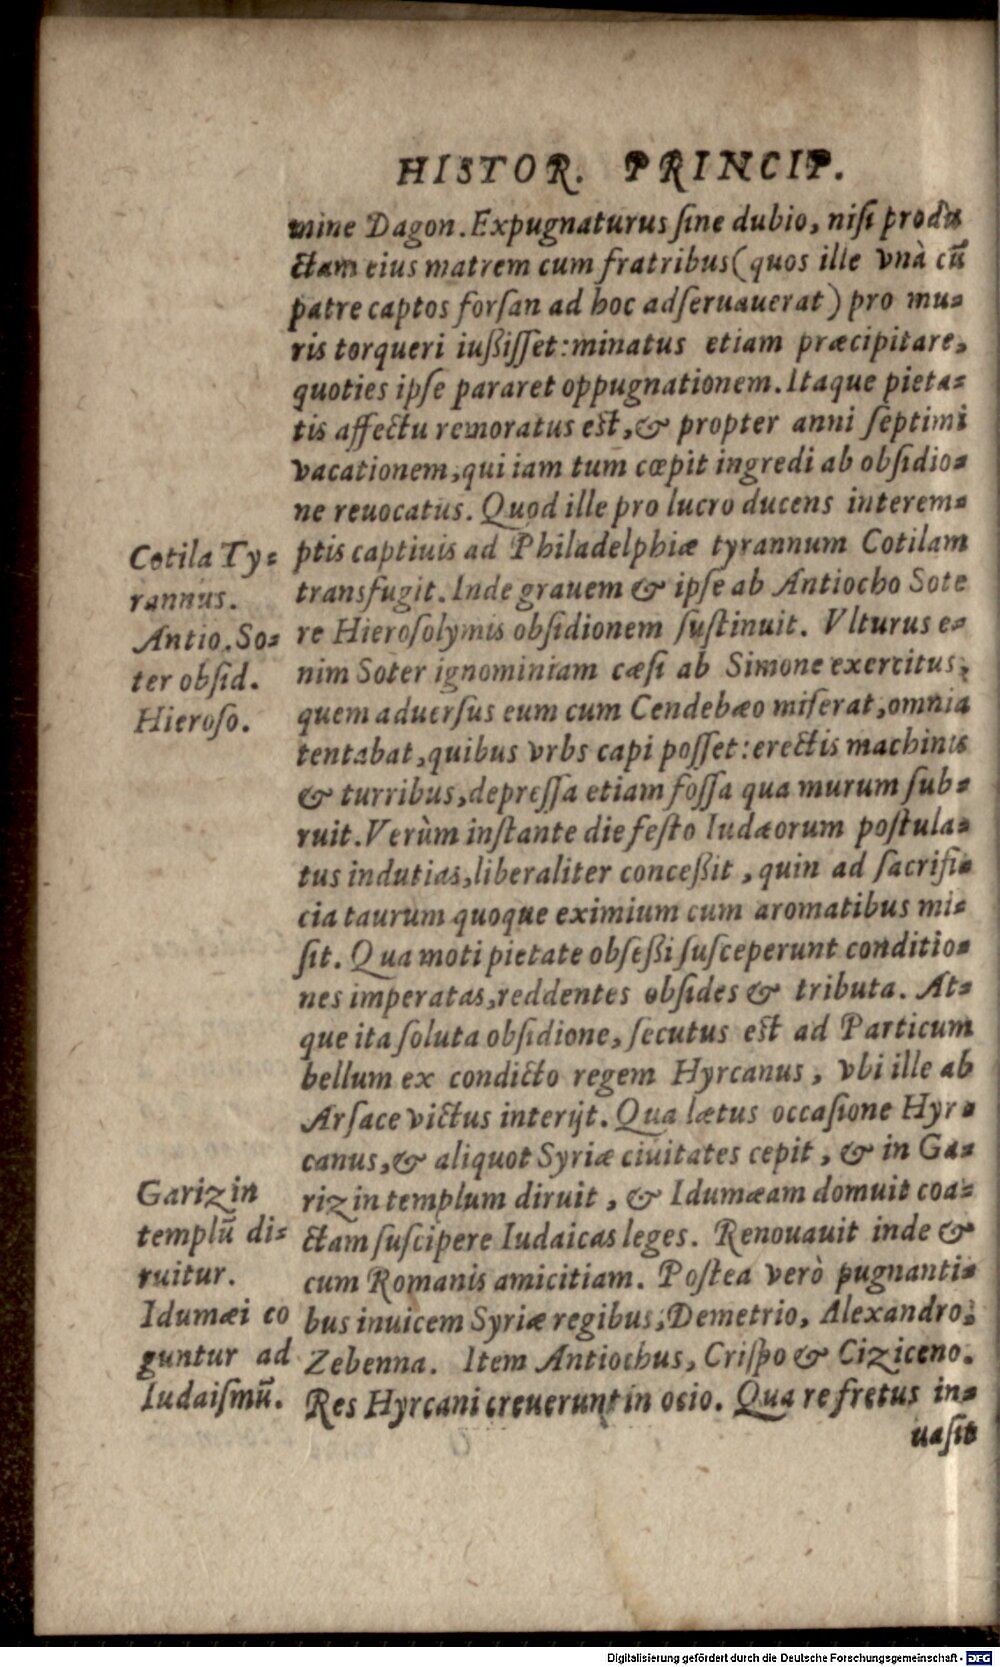 HISTOR. PRINCIP.
mine Dagon. Expugnaturus ſine dubio, niſi produ
ctam eius matrem cum fratribus (quos ille vnà cũ
patre captos forſan ad hoc adſeruauerat) pro mu-
ris torqueri iußiſſet: minatus etiam præcipitare,
quoties ipſe pararet oppugnationem. Itaque pieta-
tis affectu remoratus est, & propter anni ſeptimi
vacationem, qui iam tum cœpit ingredi ab obſidio-
ne reuocatus. Quod ille pro lucro ducens interem-
ptis captiuis ad Philadelphiæ tyrannum Cotilam
transfugit. Inde grauem & ipſe ab Antiocho Sote
re Hieroſolymis obſidionem ſuſtinuit. Vlturus e-
nim Soter ignominiam cæſi ab Simone exercitus,
quem aduerſus eum cum Cendebæo miſerat, omnia
tentabat, quibus vrbs capi poſſet: erectis machinis
& turribus, depreſſa etiam foſſa qua murum ſub-
ruit. Verùm inſtante die feſto Iudæorum poſtula-
tus indutias, liberaliter conceßit, quin ad ſacrifi-
cia taurum quoque eximium cum aromatibus mi-
ſit. Qua moti pietate obſeßi ſuſceperunt conditio-
nes imperatas, reddentes obſides & tributa. At-
que ita ſoluta obſidione, ſecutus est ad Particum
bellum ex condicto regem Hyrcanus, vbi ille ab
Arſace victus interijt. Qua lætus occaſione Hyr-
canus, & aliquot Syriæ ciuitates cepit, & in Ga-
rizin templum diruit, & Idumæam domuit coa-
ctam ſuſcipere Iudaicas leges. Renouauit inde &
cum Romanis amicitiam. Poſtea verò pugnanti-
bus inuicem Syriæ regibus, Demetrio, Alexandro,
Zebenna. Item Antiochus, Criſpo & Ciziceno.
Res Hyrcani creuerunt in ocio. Qua re fretus in-
uaſit
Cotila Ty-
rannus.
Antio. So-
ter obſid.
Hieroſo.
Garizin
templũ di-
ruitur.
Idumæi co
guntur ad
Iudaiſmũ.
Digitalisierung gefördert durch die Deutsche Forschungsgemeinschaft - DFG